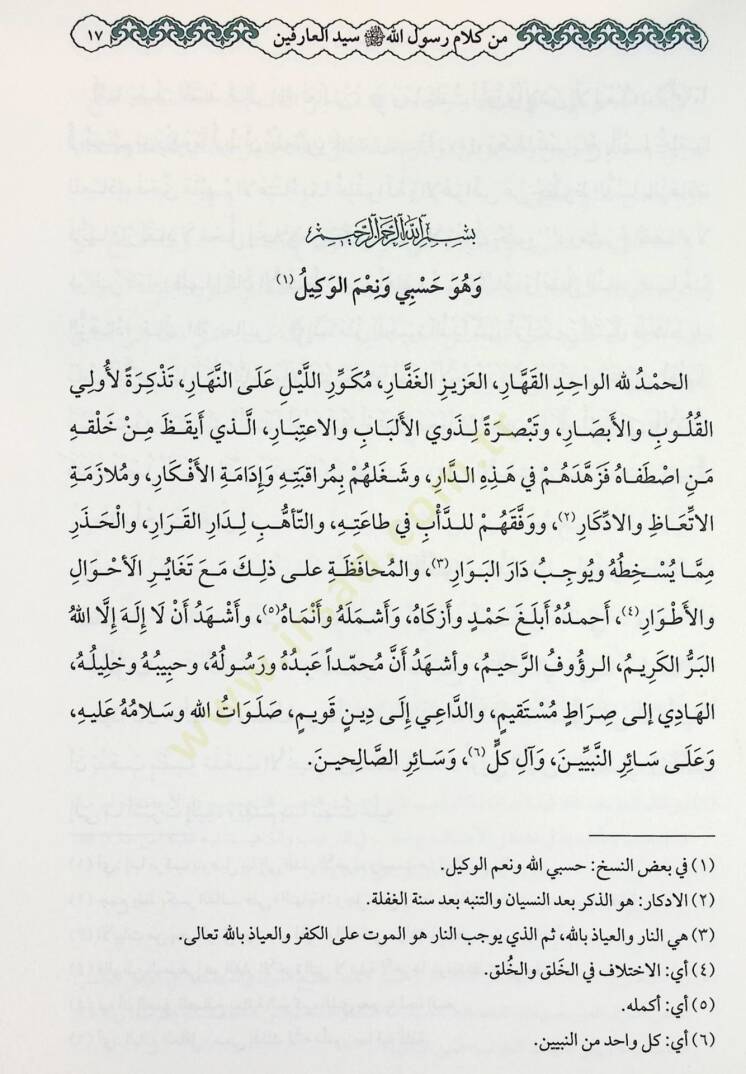 من كلام رسول الله ﷺ سيد العارفين ١٧
بسم الله الرحمن الرحيم
وَهُوَ حَسْبِي وَنَعْمَ الوَكِيلُ (١)
الحمْدُ لله الواحِدِ القَهَّارِ، العَزيزِ الغَفَّارِ، مُكَوِّرِ اللَّيْلِ عَلَى النَّهَارِ، تَذْكِرَةً لأُولِي
القُلُوبِ والأَبصَارِ، وتَبْصرَةً لِذَوِي الأَلبَابِ والاعتِبَارِ، الَّذي أَيقَظَ مِنْ خَلْقهِ
مَنِ اصْطَفاهُ فَزَهَّدَهُمْ في هَذِهِ الدَّارِ، وشَغَلهُمْ بِمُراقبَتِهِ وَإِدَامَةِ الأَفْكَارِ، ومُلازَمَةِ
الاتِّعَاظِ والادِّكَارِ (٢)، ووَفَّقَهُمْ للدَّأْبِ في طاعَتِهِ، والتّأهُّبِ لِدَارِ القَرارِ، والْحَذَرِ
مِمَّا يُسْخِطُهُ ويُوجِبُ دَارَ البَوَارِ (٣)، والمُحافَظَةِ على ذلِكَ مَعَ تَغَايُرِ الأَحْوَالِ
والأَطْوَارِ (٤)، أَحمدُهُ أَبلَغَ حَمْدٍ وأَزكَاهُ، وَأَشمَلَهُ وأَنْمَاهُ (٥)، وأَشْهَدُ أَنْ لَا إِلَهَ إِلَّا اللهُ
البَرُّ الكَرِيمُ، الرؤُوفُ الرَّحيمُ، وأشهَدُ أَنَّ مُحمّداً عَبدُهُ ورَسُولُهُ، وحبِيبُهُ وخلِيلُهُ،
الهَادِي إلى صِرَاطٍ مُسْتَقيمٍ، والدَّاعِي إِلَى دِينٍ قَويمٍ، صَلَوَاتُ الله وسَلامُهُ عَليهِ،
وَعَلَى سَائِرِ النَّبيِّينَ، وَآلِ كلٍّ (٦)، وَسَائرِ الصَّالِحينَ.
(١) في بعض النسخ: حسبي الله ونعم الوكيل.
(٢) الادكار: هو الذكر بعد النسيان والتنبه بعد سنة الغفلة.
(٣) هي النار والعياذ بالله، ثم الذي يوجب النار هو الموت على الكفر والعياذ بالله تعالى.
(٤) أي: الاختلاف في الخَلق والخُلق.
(٥) أي: أكمله.
(٦) أي: كل واحد من النبيين.